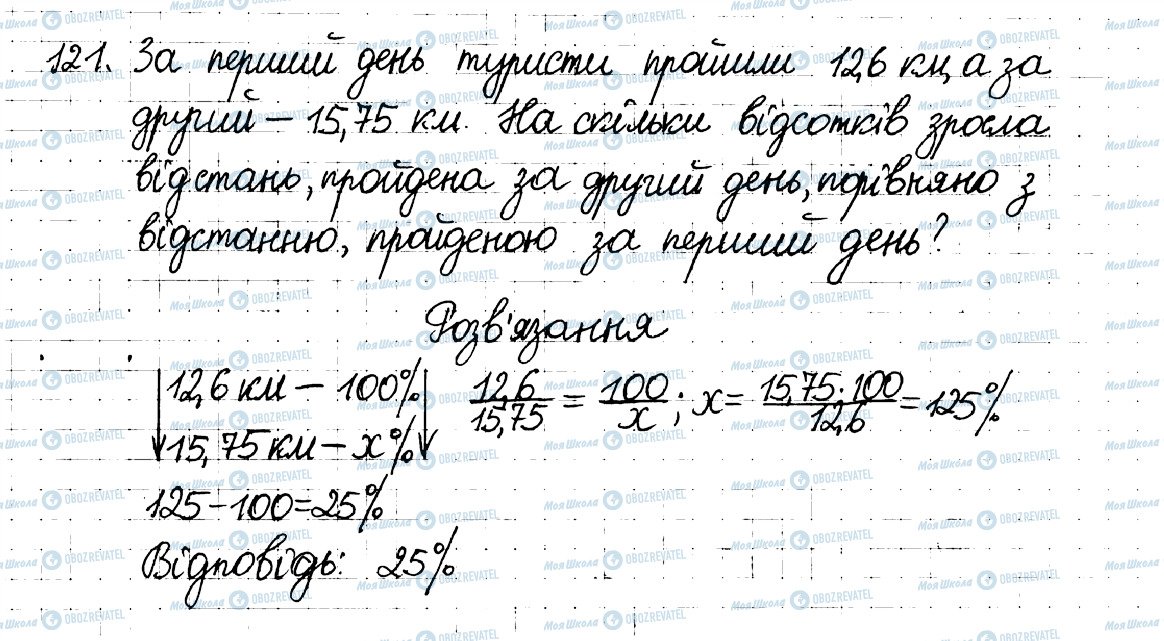 121. За перший день туристи пройшли 12,6 км, а за
другий – 15,75 км. На скільки відсотків зросла
відстань, пройдена за другий день, порівняно з
відстанню, пройденою за перший день?
Розв'язання
12,6 км – 100% 12,6/15,75 = 100/x ; x = 15,75·100/12,6 = 125%
15,75 км – x%
125–100=25%
Відповідь: 25%